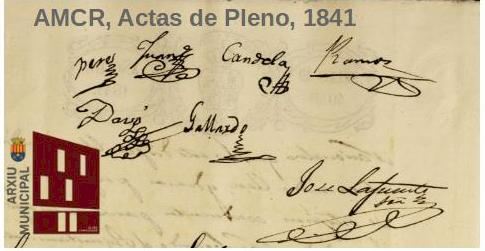 AMCR, Actas de Pleno, 1841
peres Juan Candela Ramos
Gallardo
Jose Lafuente
ARXIU
MUNICIPAL